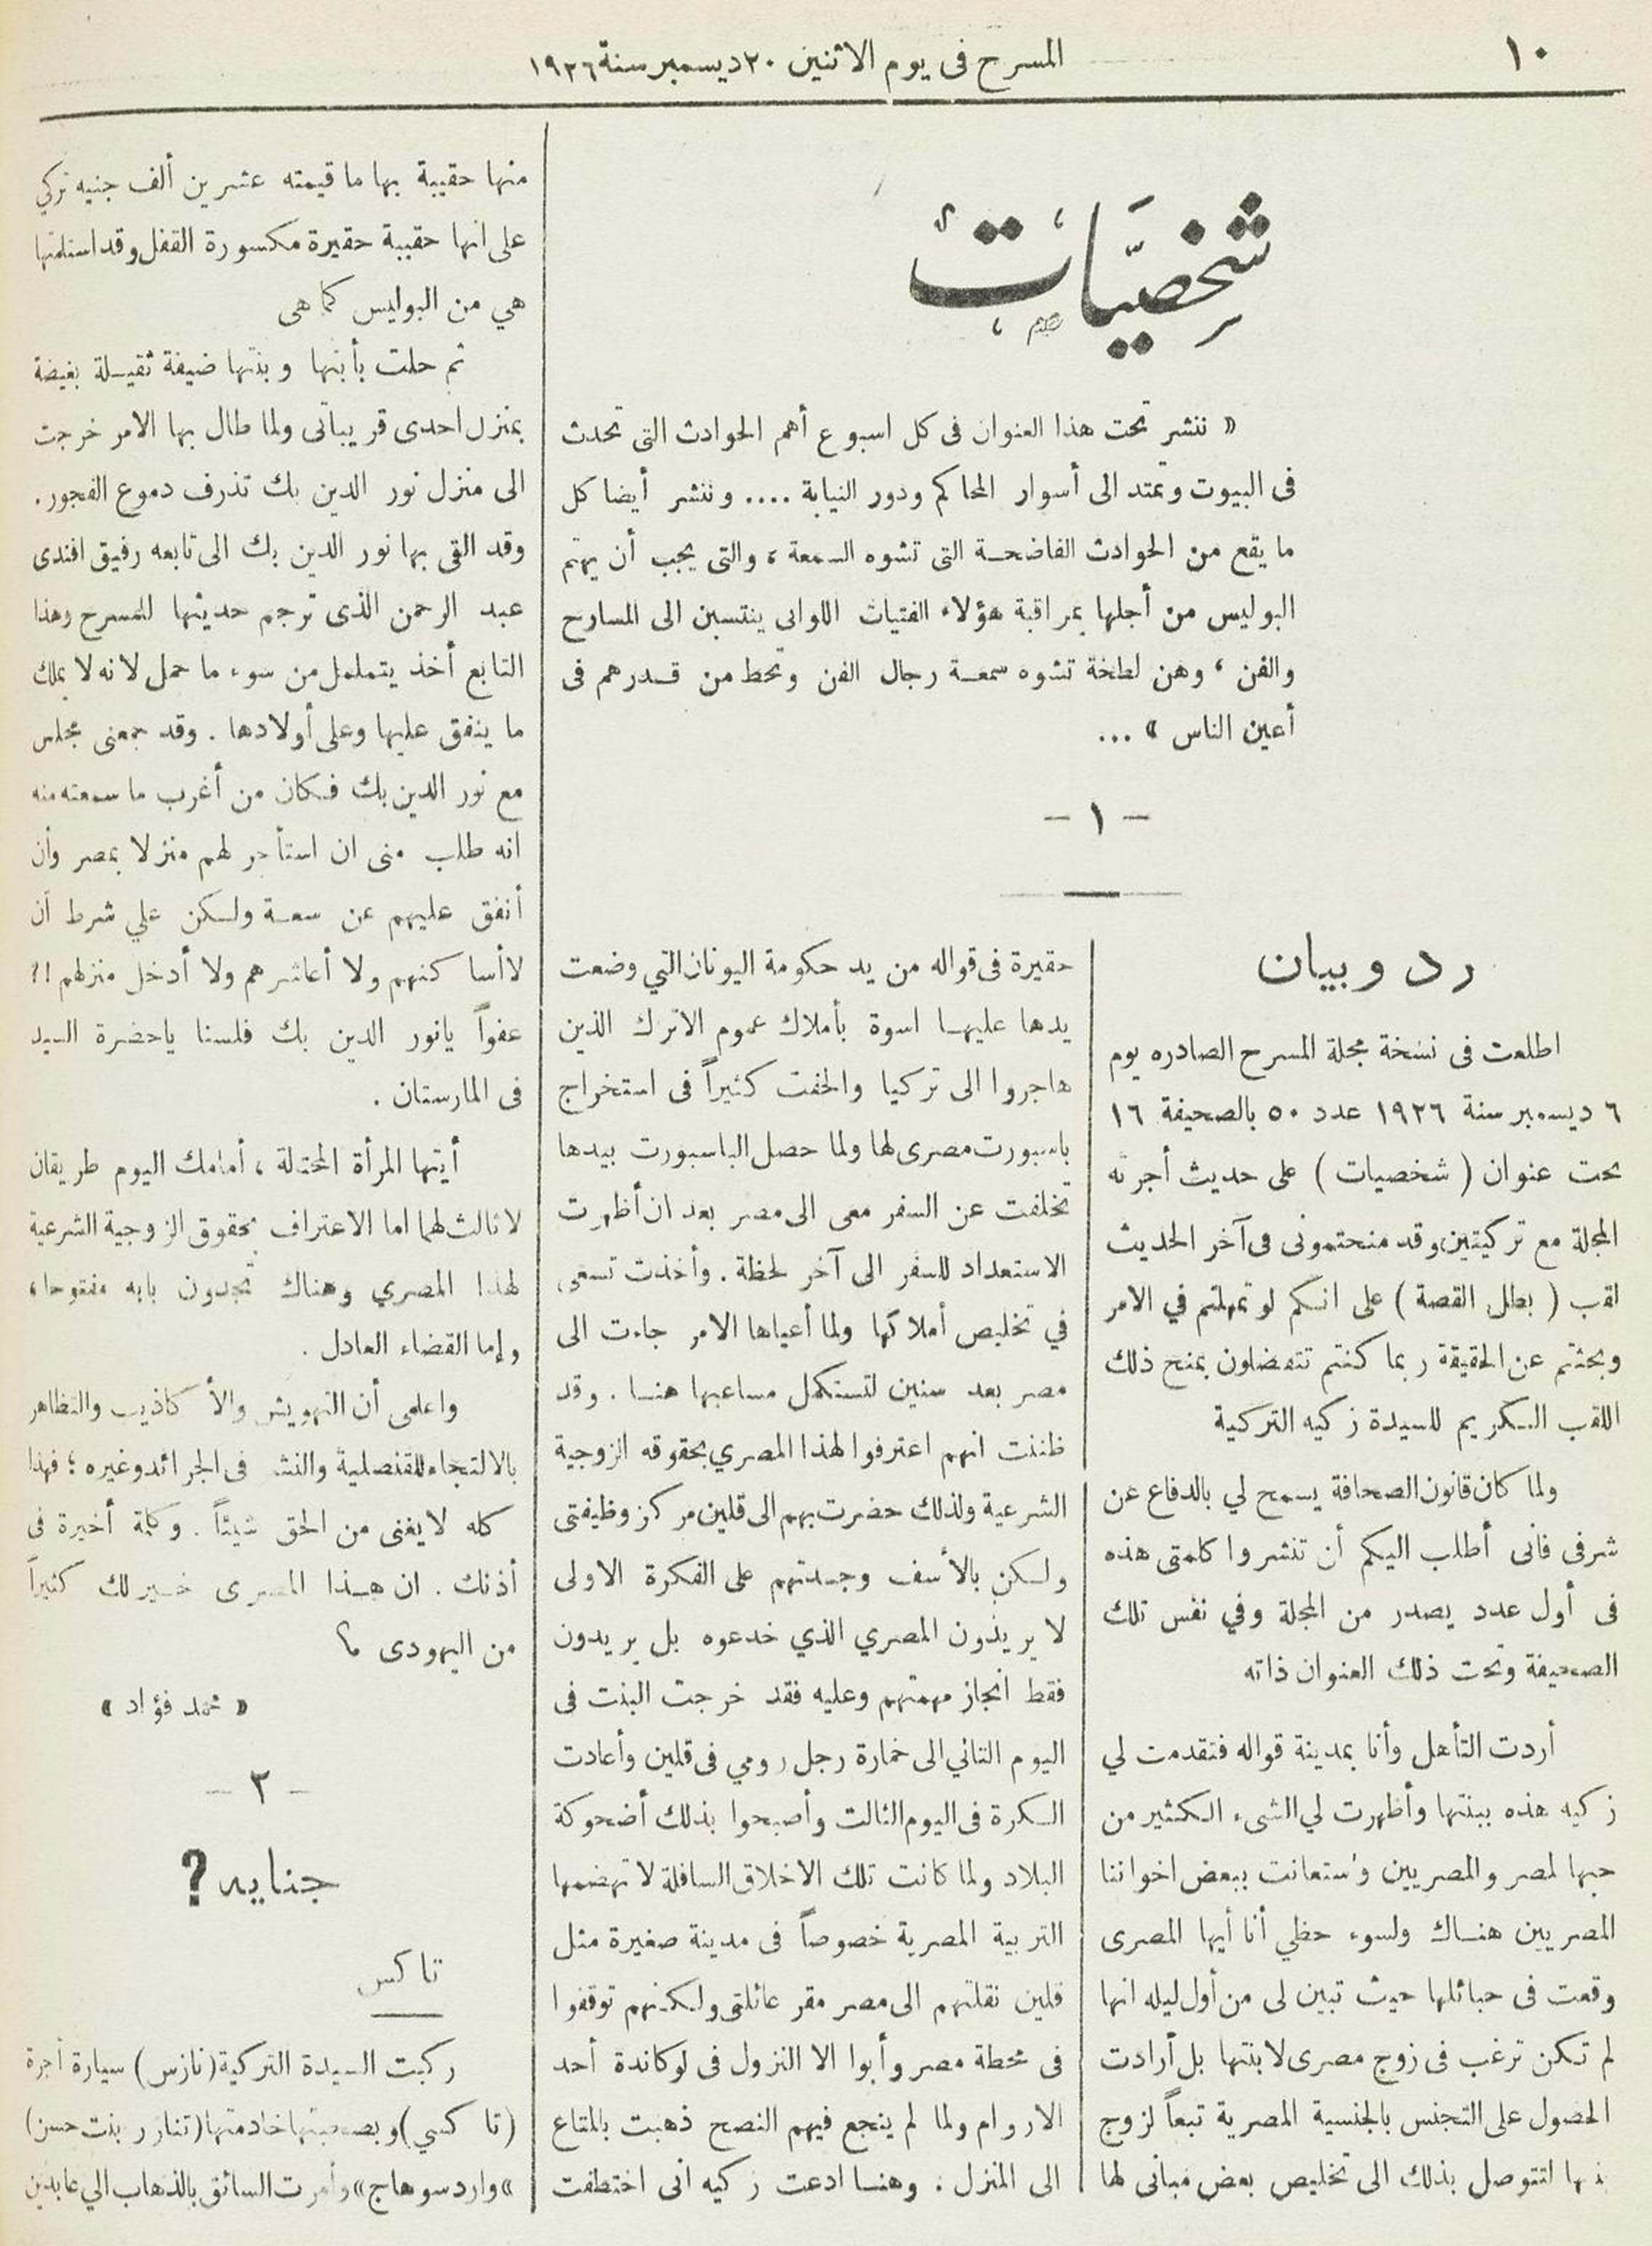 ١٠
المسرح فى يوم الاثنين ٢٠ ديسمبر سنة ١٩٢٦
شخصيات
« ننشر تحت هذا العنوان فى كل اسبوع أهم الحوادث التى تحدث
فى البيوت وتمتد الى أسوار المحاكم ودور النيابة .... وننشر أيضا كل
ما يقع من الحوادث الفاضحة التى تشوه السمعة ، والتى يجب أن يهتم
البوليس من أجلها بمراقبة هؤلاء الفتيات اللواتى ينتسبن الى المسارح
والفن ، وهن لطخة تشوه سمعة رجال الفن وتحط من قدرهم فى
أعين الناس » ...
- ١ -
رد وبيان
اطلعت فى نسخة مجلة المسرح الصادره يوم
٦ ديسمبر سنة ١٩٢٦ عدد ٥٠ بالصحيفة ١٦
تحت عنوان ( شخصيات ) على حديث أجرته
المجلة مع تركيتين، وقد منحتمونى فى آخر الحديث
لقب ( بطل القصة ) على انكم لو تمهلتم في الامر
وبحثتم عن الحقيقة ربما كنتم تتفضلون بمنح ذلك
اللقب الكريم للسيدة زكيه التركية
ولما كان قانون الصحافة يسمح لي بالدفاع عن
شرفى فانى أطلب اليكم أن تنشروا كلمتى هذه
فى أول عدد يصدر من المجلة وفي نفس تلك
الصحيفة وتحت ذلك العنوان ذاته
أردت التأهل وأنا بمدينة قواله فتقدمت لي
زكيه هذه ببنتها وأظهرت لي الشىء الكثير من
حبها لمصر والمصريين واستعانت ببعض اخواننا
المصريين هناك ولسوء حظي أنا أيها المصرى
وقعت فى حبائلها حيث تبين لى من أول ليله انها
لم تكن ترغب فى زوج مصرى لابنتها بل أرادت
الحصول على التجنس بالجنسية المصرية تبعاً لزوج
بنتها لتتوصل بذلك الى تخليص بعض مبانى لها
حقيرة فى قواله من يد حكومة اليونان التي وضعت
يدها عليها اسوة بأملاك عموم الاترك الذين
هاجروا الى تركيا والحفت كثيراً فى استخراج
باسبورت مصرى لها ولما حصل الباسبورت بيدها
تخلفت عن السفر معى الى مصر بعد ان أظهرت
الاستعداد للسفر الى آخر لحظة . وأخذت تسعى
في تخليص أملاكها ولما أعياها الامر جاءت الى
مصر بعد سنين لتستكمل مساعيها هنا . وقد
ظننت انهم اعترفوا لهذا المصري بحقوقه الزوجية
الشرعية ولذلك حضرت بهم الى قلين مركز وظيفتى
ولكن بالأسف وجدتهم على الفكرة الاولى
لا يريدون المصري الذي خدعوه بل يريدون
فقط انجاز مهمتهم وعليه فقد خرجت البنت فى
اليوم الثاني الى خمارة رجل رومي فى قلين وأعادت
الكرة فى اليوم الثالث وأصبحوا بذلك أضحوكة
البلاد ولما كانت تلك الاخلاق السافلة لا تهضمها
التربية المصرية خصوصاً فى مدينة صغيرة مثل
قلين نقلتهم الى مصر مقر عائلتى ولكنهم توقفوا
فى محطة مصر وأبوا الا النزول فى لوكاندة أحد
الاروام ولما لم ينجع فيهم النصح ذهبت بالمتاع
الى المنزل . وهنا ادعت زكيه انى اختطفت
منها حقيبة بها ما قيمته عشرين ألف جنيه تركي
على انها حقيبة حقيرة مكسورة القفل وقد استلمتها
هي من البوليس كما هى
ثم حلت بأبنها وبنتها ضيفة ثقيلة بغيضة
بمنزل احدى قريباتى ولما طال بها الامر خرجت
الى منزل نور الدين بك تذرف دموع الفجور .
وقد القى بها نور الدين بك الى تابعه رفيق افندى
عبد الرحمن الذى ترجم حديثها للمسرح وهذا
التابع أخذ يتململ من سوء ما حمل لانه لا يملك
ما ينفق عليها وعلى أولادها . وقد جمعنى مجلس
مع نور الدين بك فكان من أغرب ما سمعته منه
انه طلب منى ان استأجر لهم منزلا بمصر وأن
أنفق عليهم عن سعة ولكن علي شرط أن
لا أساكنهم ولا أعاشرهم ولا أدخل منزلهم !؟
عفواً يا نور الدين بك فلسنا ياحضرة السيد
فى المارستان .
أيتها المرأة المحتالة ، أمامك اليوم طريقان
لا ثالث لهما اما الاعتراف بحقوق الزوجية الشرعية
لهذا المصري وهناك تجدون بابه مفتوحا،
وإما القضاء العادل .
واعلمى أن التهويش والأكاذيب والتظاهر
بالالتجاء للقنصلية والنشر فى الجرائد وغيره ؛ فهذا
كله لا يغنى من الحق شيئاً . وكلمة أخيرة فى
أذنك . ان هذا المصرى خير لك كثيراً
من اليهودى ؟
« محمد فؤاد »
- ٢ -
جنايه ؟
تاكس
ركبت السيدة التركية (نازس) سيارة أجرة
(تاكسي) وبصحبتها خادمتها (تنازر بنت حسن)
«وارد سوهاج» وأمرت السائق بالذهاب الي عابدين